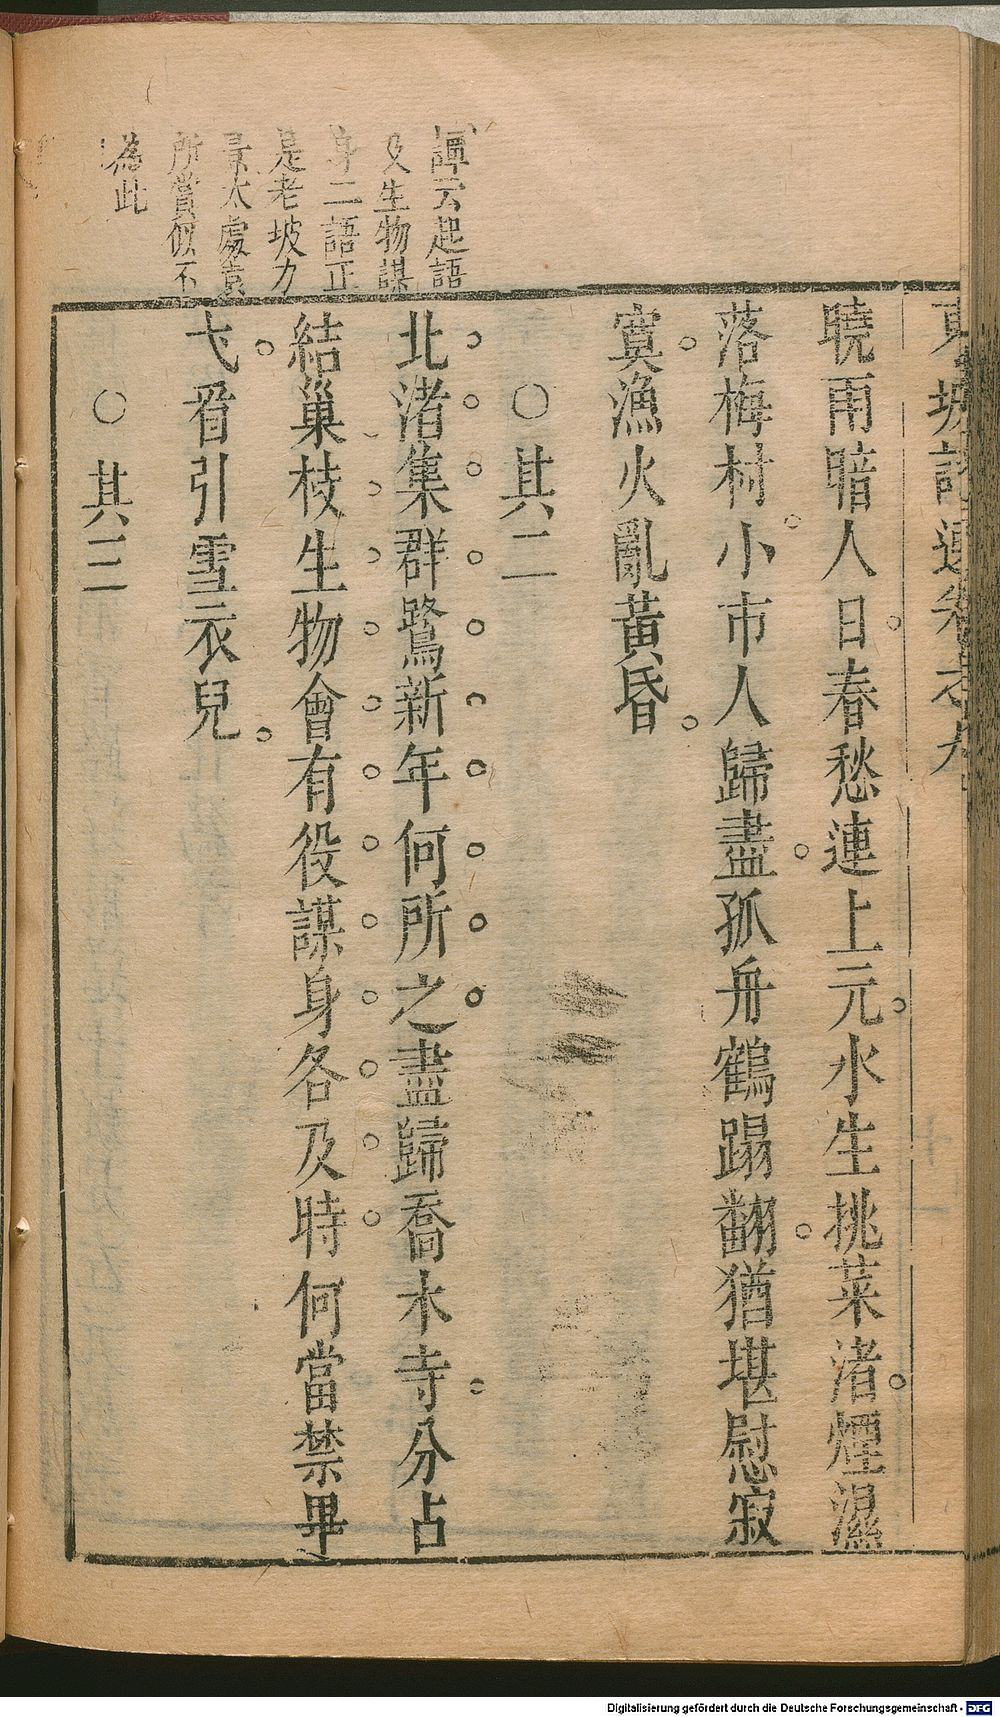 東坡詩選卷之九
曉雨暗人日春愁連上元水生挑菜渚煙濕
落梅村小市人歸盡孤舟鶴蹋翻猶堪慰寂
寞漁火亂黃昏
○其二
北渚集群鷺新年何所之盡歸喬木寺分占
結巢枝生物會有役謀身各及時何當禁畢
弋看引雪衣兒
○其三
譚云起語
及生物謀
身二語正
是老坡力
量大處袁
所賞似不
為此
Digitalisierung gefördert durch die Deutsche Forschungsgemeinschaft - DFG